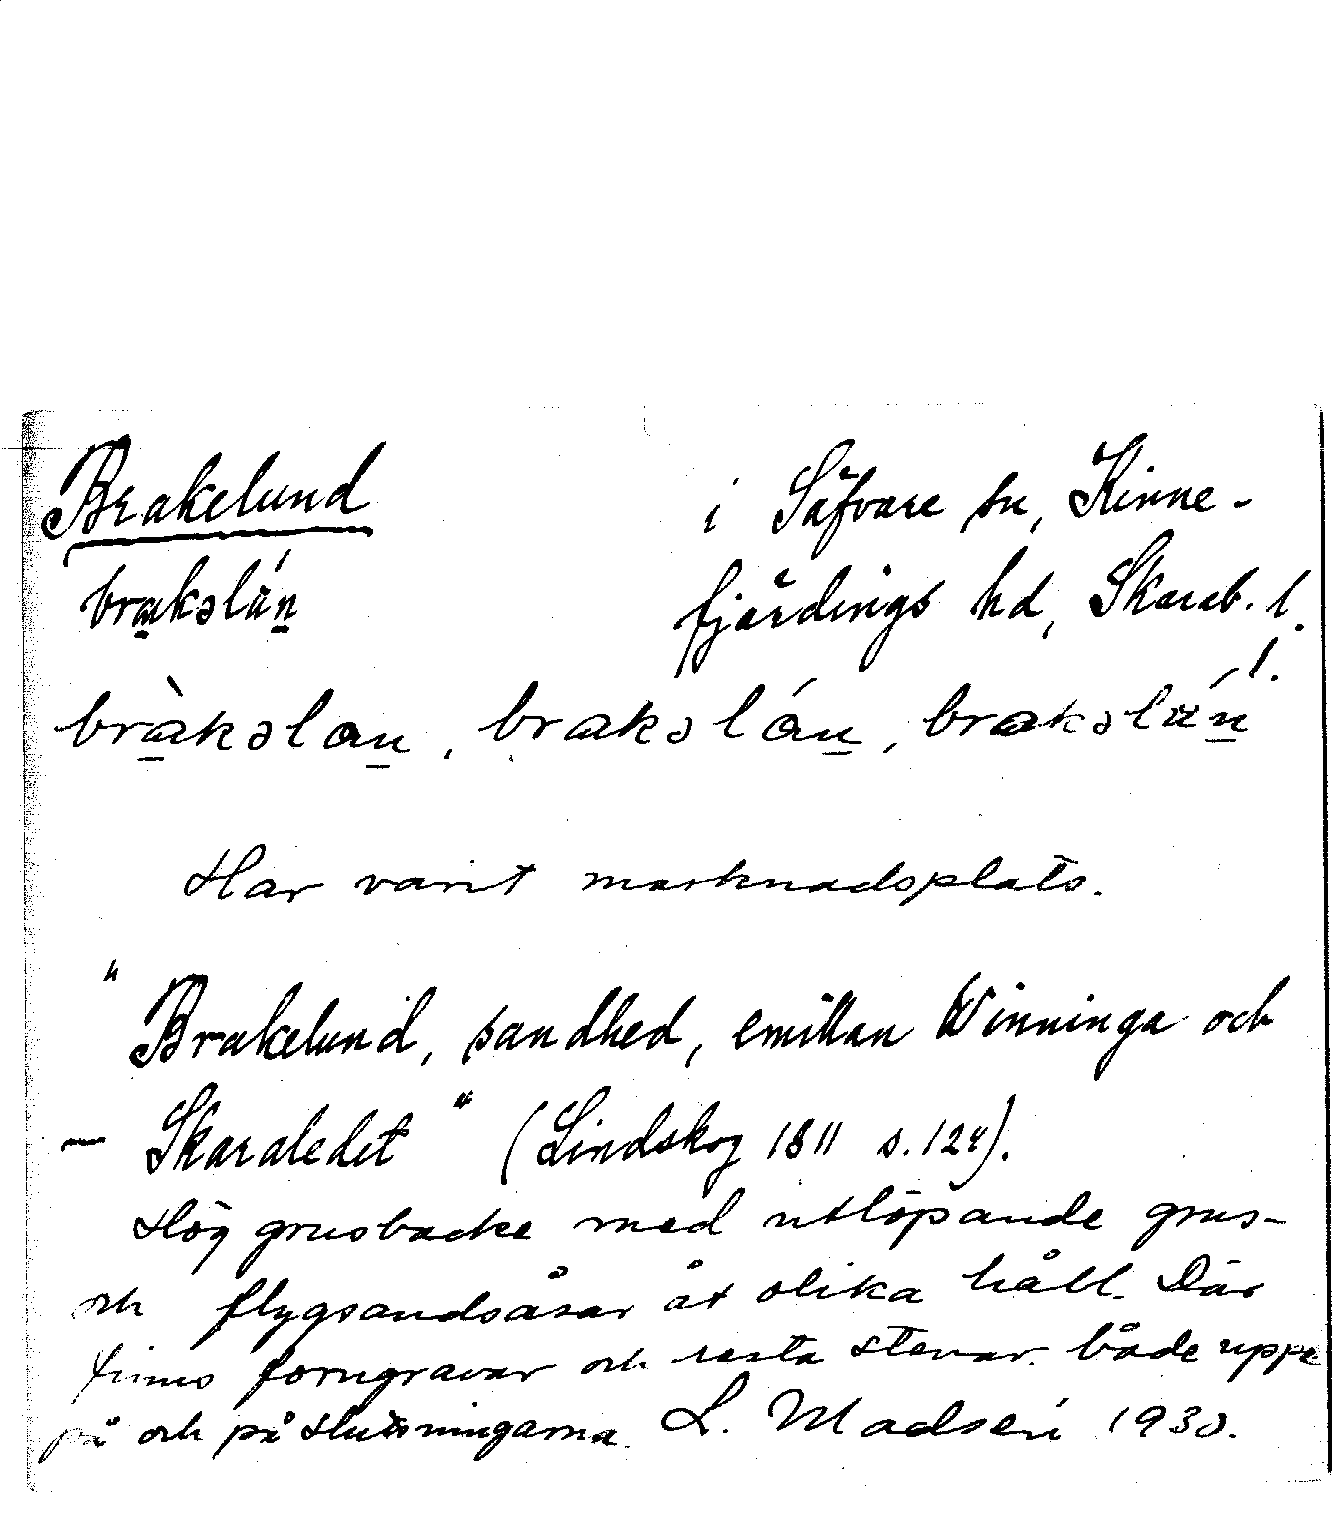 Brakelund
i Säfvare sn, Kinne-
brakəlán
fjärdings hd, Skarab. l.
bràkəlan, brakəlán, brakəlán l.
Har varit marknadsplats.
"Brakelund, sandhed, emillan Winninga och
— Skaraledet" (Lindskog 1811 s. 124).
Hög grusbacke med utlöpande grus-
och flygsandsåsar åt olika håll. Där
finns forngravar och resta stenar både uppe
på och på sluttningarna. L. Madsén 1930.